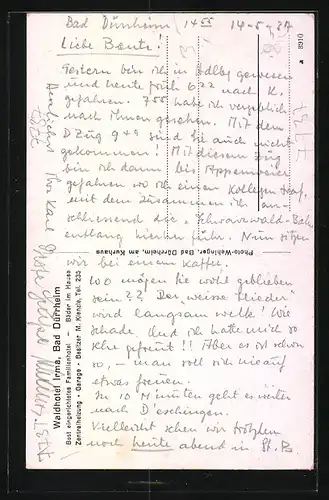 Bad Dürrheim 14 55 14-5-37
Liebe Beate!
Gestern bin ich in Hdlbg gewesen
und heute früh 6 22 nach K.
gefahren. 7 55 habe ich vergeblich
nach Ihnen gesehen. Mit dem
DZug 9 49 sind Sie auch nicht
gekommen! Mit diesem Zug
bin ich dann bis Appenweier
gefahren wo ich einen Kollegen traf,
mit dem zusammen ich an-
schliessend die "Schwarzwald-Bahn
entlang hierher fuhr. Nun sitzen
wir bei einem Kaffee.
Wo mögen Sie wohl geblieben
sein?? Der weisse Flieder
wird langsam welk! Wie
schade. Und ich hatte mich so
sehr gefreut!! Aber es ist schon
so, - man soll sich nie auf
etwas freuen.
In 10 Minuten geht es weiter
nach Donaueschingen.
Vielleicht sehen wir trotzdem
noch heute abend in St.
Herzlichst Ihr Karl
Waldhotel Irma, Bad Dürrheim
Best eingerichtetes Familienhotel - Bäder im Hause
Zentralheizung - Garage - Besitzer M. Kienzle, Tel. 233
Photo-Wehinger, Bad Dürrheim, am Kurhaus
a 8910